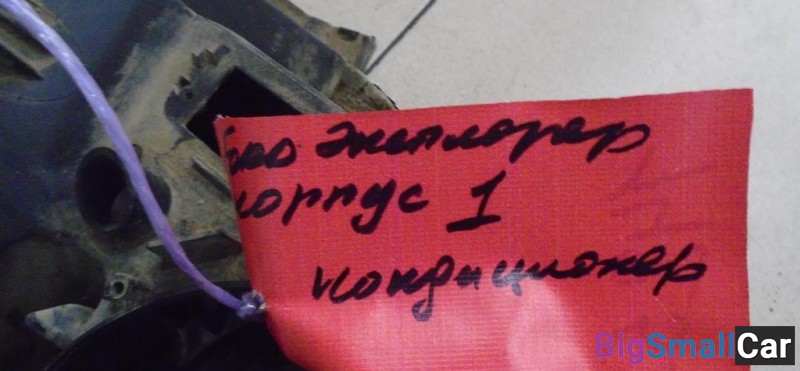 Эксплорер
корпус 1
кондиционер
BigSmallCar